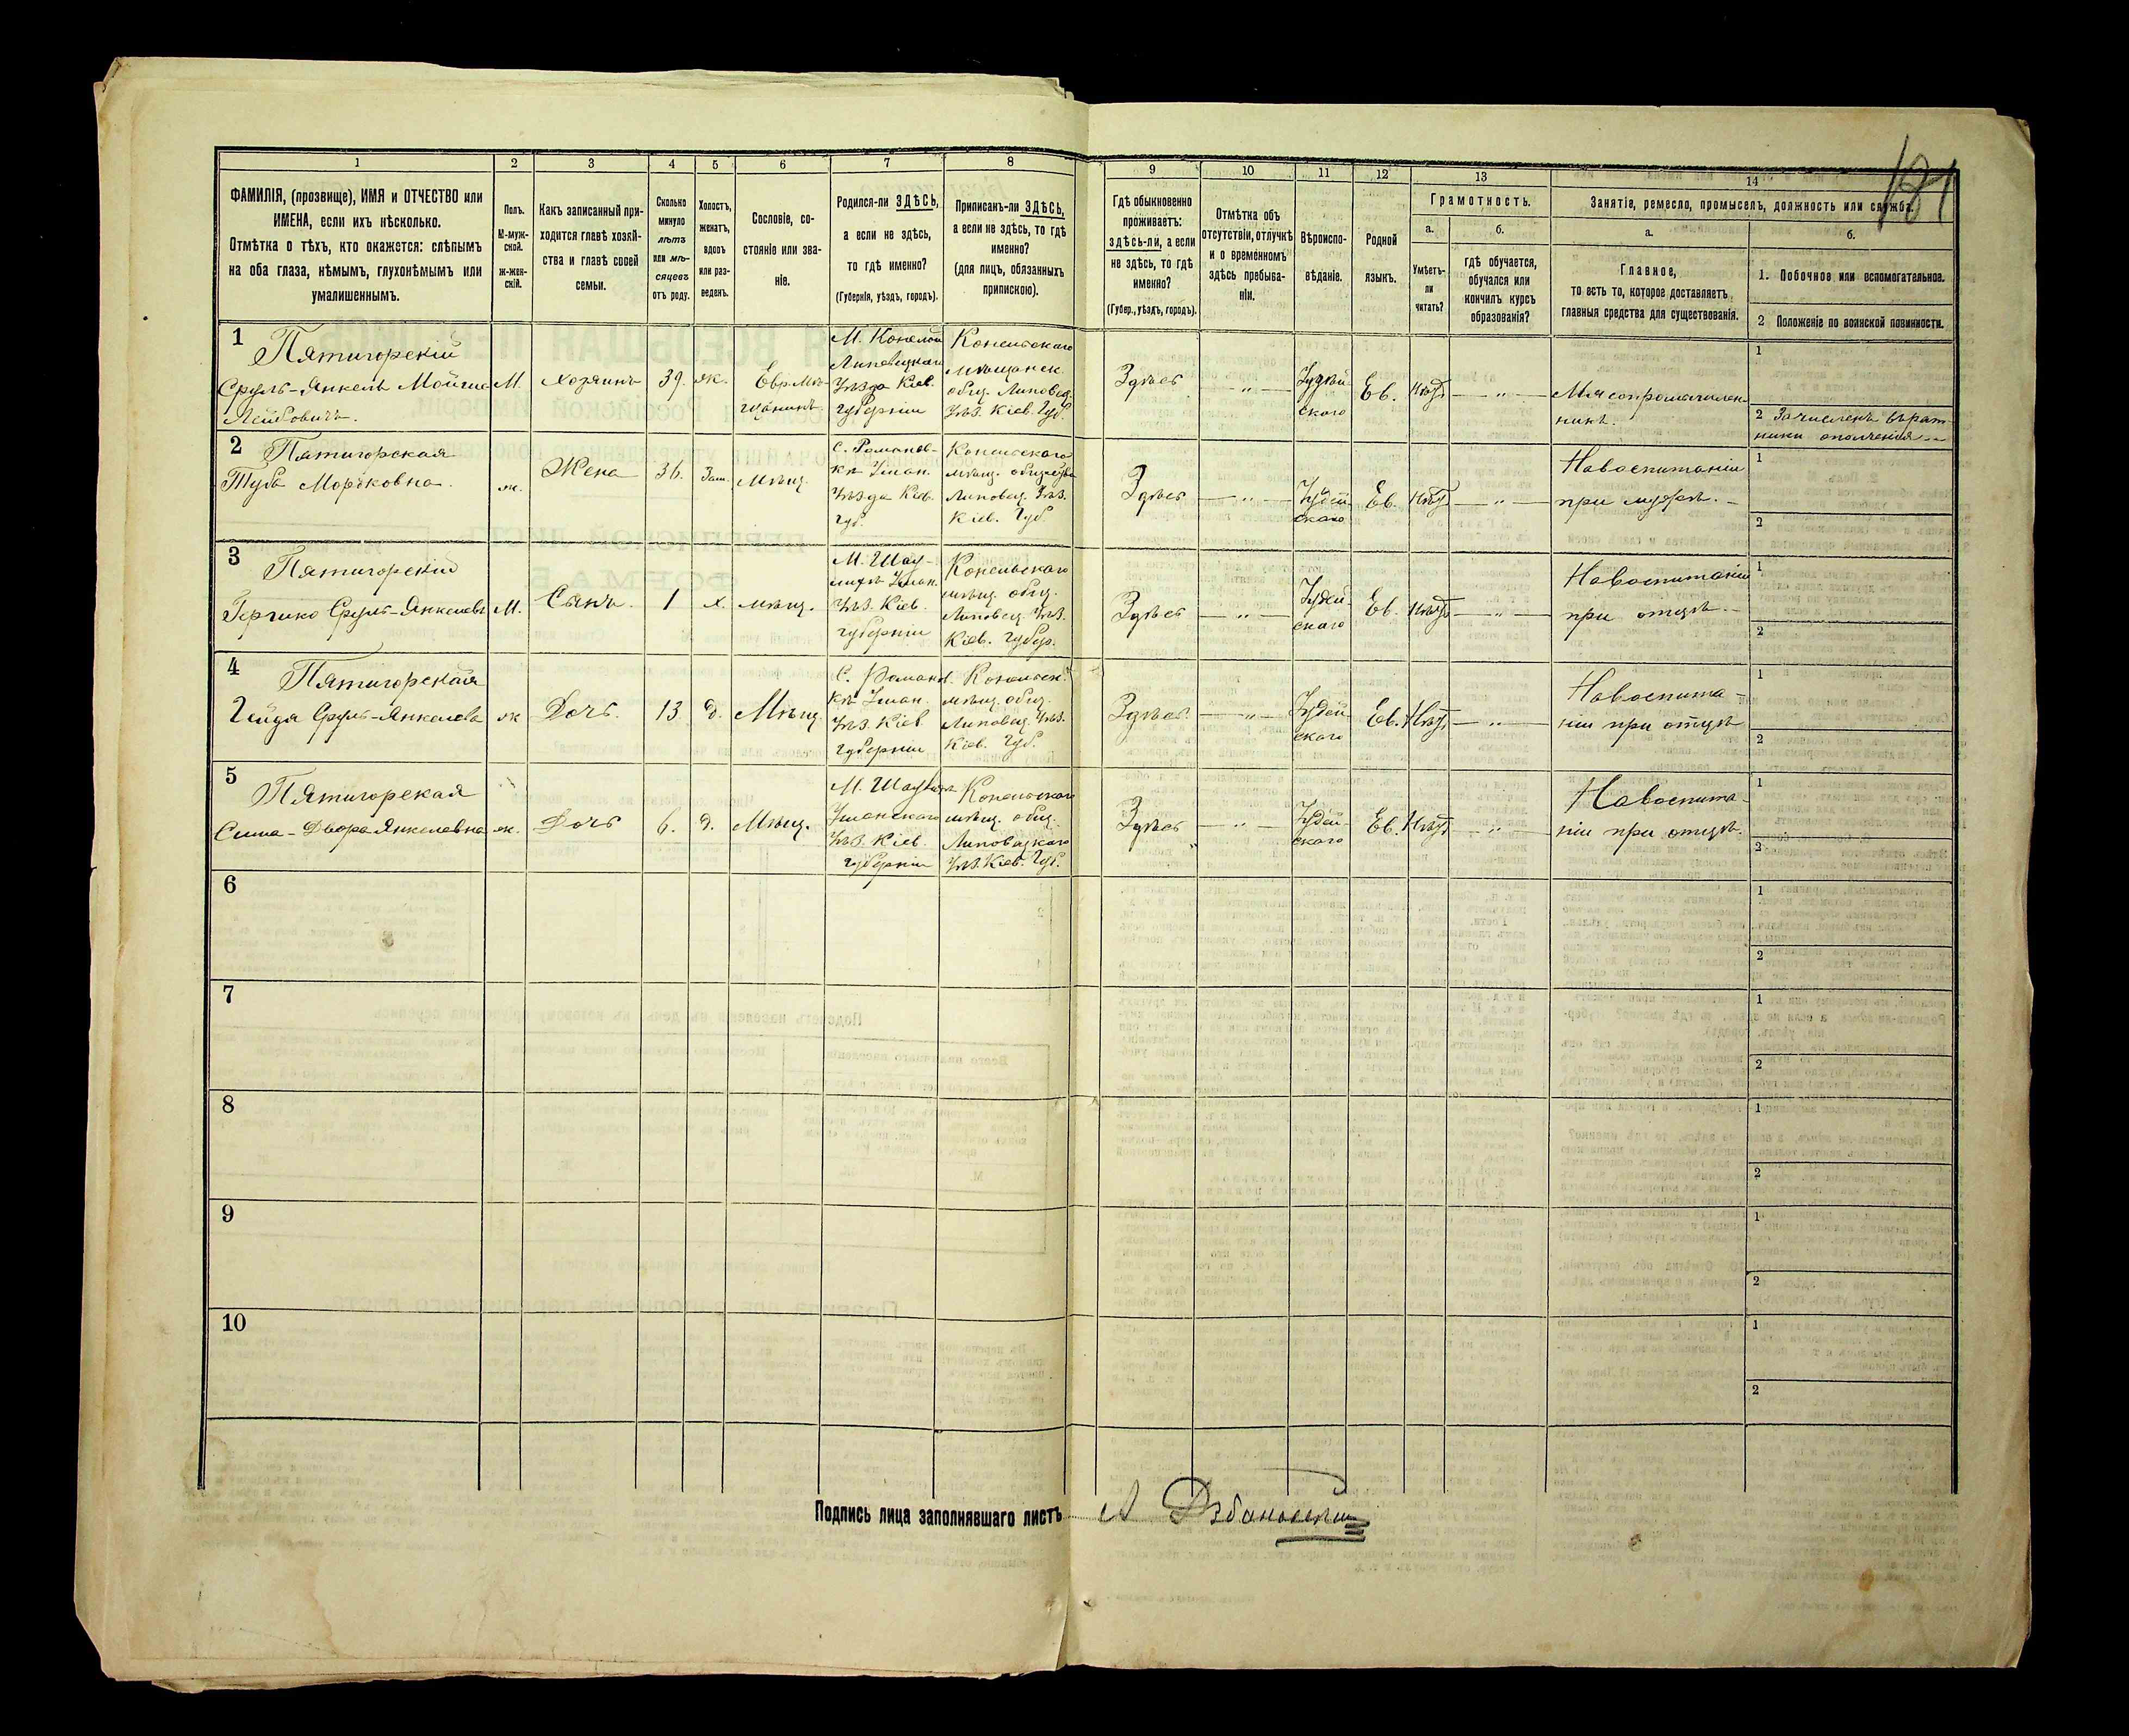 1 2 3 4 5 6 7 8
9 10 11 12 13 14
ФАМИЛІЯ, (прозвище), ИМЯ и ОТЧЕСТВО или
ИМЕНА, если ихъ нѣсколько.
Отмѣтка о тѣхъ, кто окажется: слѣпымъ
на оба глаза, нѣмымъ, глухонѣмымъ или
умалишеннымъ.
Полъ.
М-муж-
ской.
ж-жен-
скій.
Какъ записанный при-
ходится главѣ хозяй-
ства и главѣ своей
семьи.
Сколько
минуло
лѣтъ
или мѣ-
сяцевъ
отъ роду.
Холостъ,
женатъ,
вдовъ
или раз-
веденъ.
Сословіе, со-
стояніе или зва-
ніе.
Родился-ли ЗДѢСЬ,
а если не здѣсь,
то гдѣ именно?
(Губернія, уѣздъ, городъ).
Приписанъ-ли ЗДѢСЬ,
а если не здѣсь, то гдѣ
именно?
(для лицъ, обязанныхъ
припискою).
Гдѣ обыкновенно
проживаетъ:
здѣсь-ли, а если
не здѣсь, то гдѣ
именно?
(Губер., уѣздъ, городъ).
Отмѣтка объ
отсутствіи, отлучкѣ
и о временномъ
здѣсь пребыва-
ніи.
Вѣроиспо-
вѣданіе.
Родной
языкъ.
Грамотность.
а.
Умѣетъ-
ли
читать?
б.
гдѣ обучается,
обучался или
кончилъ курсъ
образованія?
Занятіе, ремесло, промыселъ, должность или служба.
а.
Главное,
то есть то, которое доставляетъ
главныя средства для существованія.
б.
1. Побочное или вспомогательное.
2 Положеніе по воинской повинности.
1
Пятигорскій
Сруль-Янкель Мойше
Лейбовичъ.
М.
Хозяинъ
39.
ж.
Евр. Мѣ-
щанинъ.
Липовецкаго
Уѣзда Кіев.
губерніи
Конельскаго
мѣщанск.
общ. Липовец.
Уѣз. Кіев. Губ.
Здѣсь
— „ —
Іудей-
скаго
Ев.
Нѣтъ
— „ —
Мясопромышлен-
никъ.
1
2 Зачисленъ въ рат-
ники ополченія —
2
Пятигорская
Туба Мордковна.
ж.
Жена
36.
Зам.
Мѣщ.
С. Романов-
кѣ Уман.
Уѣзда Кіев.
Губ.
Конельскаго
мѣщ. общества
Липовец. Уѣз.
Кіев. Губ.
Здѣсь
— „ —
Іудей-
скаго
Ев.
Нѣтъ
— „ —
На воспитаніи
при мужѣ. —
1
2
3
Пятигорскій
Гершко Сруль-Янкелевъ
М.
Сынъ.
1
х.
мѣщ.
Уѣз. Кіев.
губерніи
Конельскаго
мѣщ. общ.
Липовец. Уѣз.
Кіев. Губер.
Здѣсь
— „ —
Іудей-
скаго
Ев.
Нѣтъ
— „ —
На воспитаніи
при отцѣ. —
1
2
4
Пятигорская
Сруль-Янкелева
ж
Дочь.
13
д.
Мѣщ.
С. Романов-
кѣ Уман.
Уѣз. Кіев
губерніи
Конельск.
мѣщ. общ.
Липовец. Уѣз.
Кіев. Губ.
Здѣсь
— „ —
Іудей-
скаго
Ев.
Нѣтъ
— „ —
На воспита-
ніи при отцѣ
1
2
5
Пятигорская
Сима-Двора Янкелевна
ж.
Дочь
6.
д.
Мѣщ.
Уманскаго
Уѣз. Кіев.
губерніи
Конельскаго
мѣщ. общ.
Липовецкаго
Уѣз. Кіев. Губ.
Здѣсь
— „ —
Іудей-
скаго
Ев.
Нѣтъ
— „ —
На воспита-
ніи при отцѣ.
1
2
6
1
2
7
1
2
8
1
2
9
1
2
10
1
2
Подпись лица заполнявшаго листъ